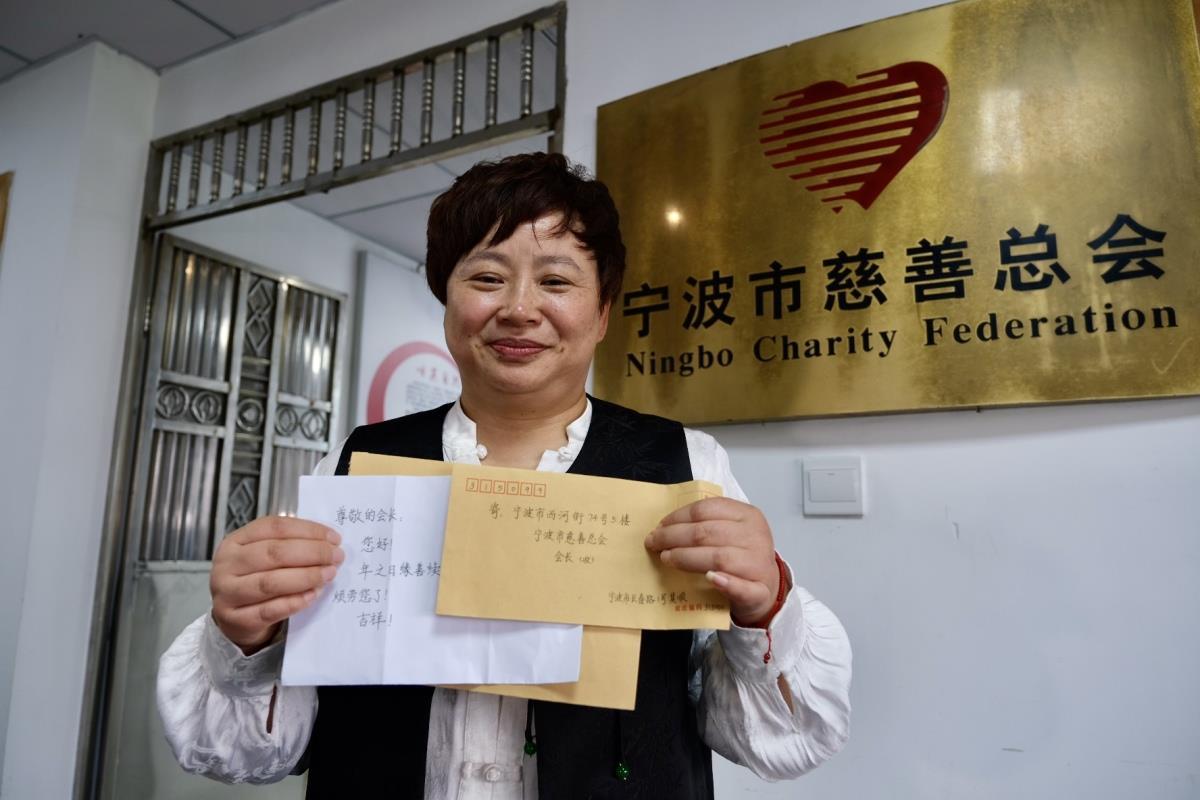 宁波市慈善总会
Ningbo Charity Federation
尊敬的会长:
您好!
年之日缘善续
烦劳您了!
吉祥!
315099
寄:宁波市西河街74号5楼
宁波市慈善总会
会长(收)
宁波市长春路1号莫顺
邮政编码